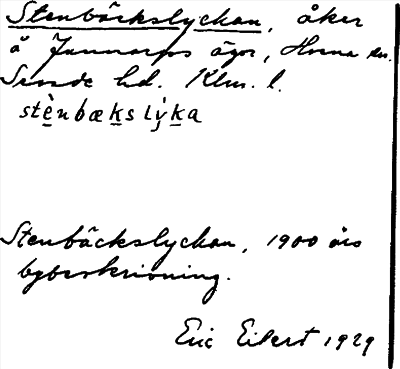 Stenbäckslyckan, åker
å Jannarps ägor, Horna sn.
Sunde hd. Klm. l.
stè̱nbæḵs lẏ̱ḵa
Stenbäckslyckan, 1900 års
bybeskrivning.
Eric Eilert 1929